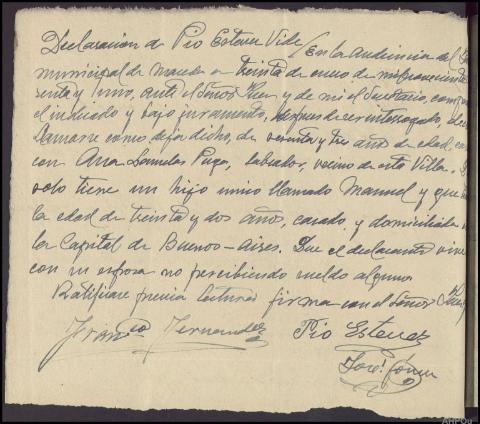 Declaración de Pío Estevez Vide / En la audiencia del
municipal de Maceda a treinta de enero de mil novecientos
senta y uno, ante el Señor Juez y de mi el Secretario,
el indicado y bajo juramento, despues de ser interrogado,
llamarse como deja dicho, de setenta y tres años de edad,
con Ana Puga, labrador, vecino de esta Villa.
solo tiene un hijo unico llamado Manuel y que
la edad de treinta y dos años, casado y domiciliado
la Capital de Buenos-Aires. Que el declarante vive
con su esposa no percibiendo sueldo alguno
Ratifícase previa lectura firma con el Señor Juez
Franco Fernandez Pio Estevez
José
AHPOu